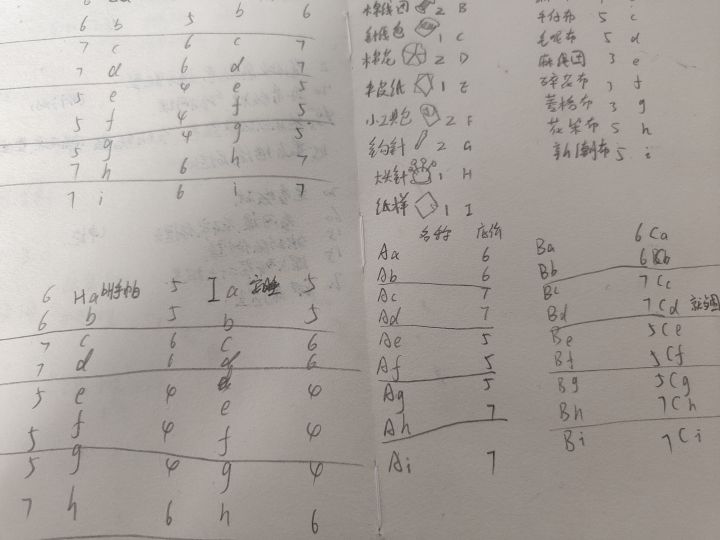 6 b 5 b 6
7 c 6 c 7
7 d 6 d 7
5 e 4 e 5
5 f 4 f 5
5 g 4 g 5
7 h 6 h 7
7 i 6 i 7
6 Ha 5 Ia 5
6 b 5 b 5
7 c 6 c 6
7 d 6 d 6
5 e 4 e 4
5 f 4 f 4
5 g 4 g 4
7 h 6 h 6
2 B
针线包 1 C
棉花 2 D
牛皮纸 1 E
小工具包 2 F
钩针 2 G
大头针 1 H
纸样 1 I
5 c
毛呢布 5 d
麻绳团 3 e
碎花布 3 f
菱格布 3 g
5 h
5 i
名称 底价
Aa 6
Ab 6
Ac 7
Ad 7
Ae 5
Af 5
Ag 5
Ah 7
Ai 7
Ba 6 Ca
Bb 6 Cb
Bc 7 Cc
Bd 7 Cd
Be 5 Ce
Bf 5 Cf
Bg 5 Cg
Bh 7 Ch
Bi 7 Ci